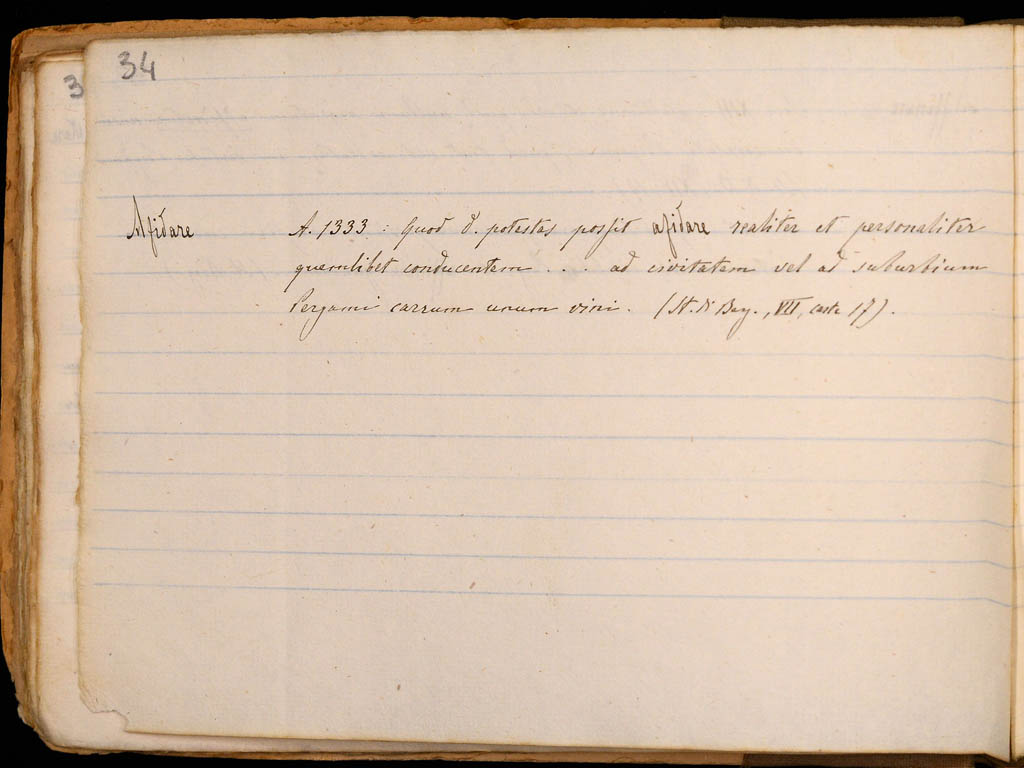 34
3
Afidare A. 1333 : Quod d. potestas possit afidare realiter et personaliter
quemlibet conducentem . . . ad civitatem vel ad suburbium
Pergami carrum unum vini. (St. di Berg., VII, carta 17).